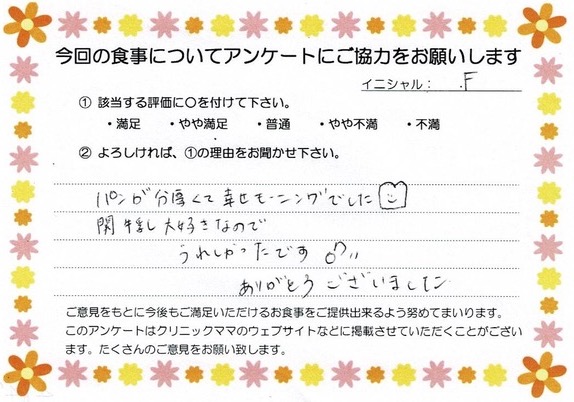 今回の食事についてアンケートにご協力をお願いします
イニシャル： F
① 該当する評価に〇を付けて下さい。
・満足 ・やや満足 ・普通 ・やや不満 ・不満
② よろしければ、①の理由をお聞かせ下さい。
パンが分厚くて幸せモーニングでした
関牛乳大好きなので
うれしかったです
ありがとうございました
ご意見をもとに今後もご満足いただけるお食事をご提供出来るよう努めてまいります。
このアンケートはクリニックママのウェブサイトなどに掲載させていただくことがござい
ます。たくさんのご意見をお願い致します。